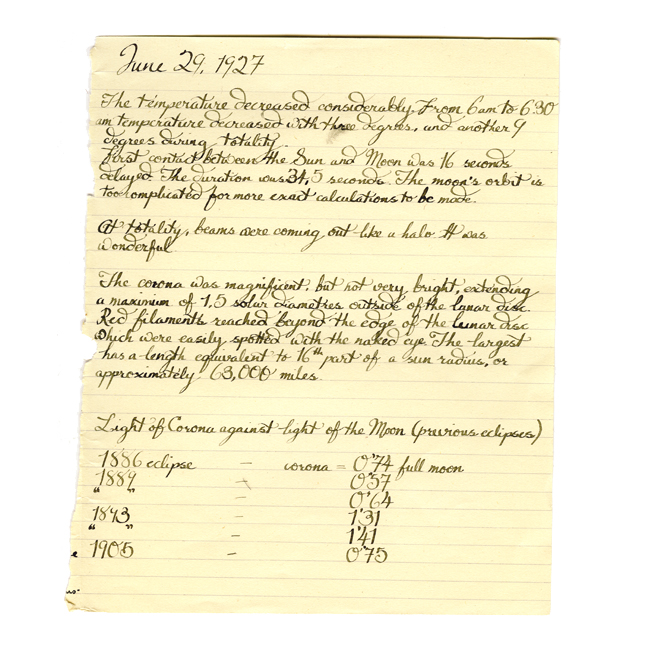 June 29, 1927
The temperature decreased considerably. From 6am to 6:30
am temperature decreased with three degrees, and another 9
degrees during totality.
First contact between the Sun and Moon was 16 seconds
delayed. The duration was 34,5 seconds. The moon's orbit is
too complicated for more exact calculations to be made.
At totality, beams were coming out like a halo. It was
wonderful.
The corona was magnificent, but not very bright, extending
a maximum of 1,5 solar diametres outside of the lunar disc.
Red filaments reached beyond the edge of the lunar disc
which were easily spotted with the naked eye. The largest
has a length equivalent to 16th part of a sun radius, or
approximately 63,000 miles.
Light of Corona against light of the Moon (previous eclipses)
1886 eclipse – corona = 0'74 full moon
1889 – 0'57
" " 0'64
1893 – 1'31
" " – 1'41
1905 – 0'75
e